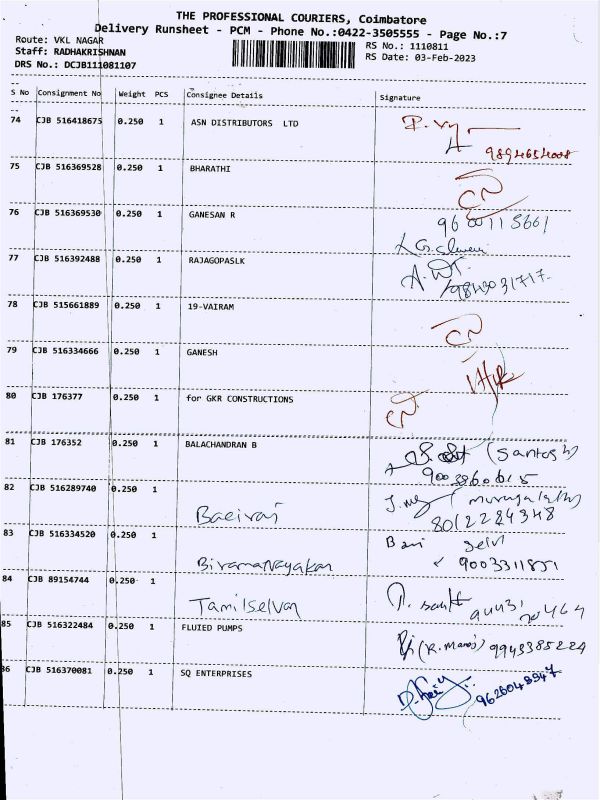 THE PROFESSIONAL COURIERS, Coimbatore
Delivery Runsheet - PCM - Phone No.:0422-3505555 - Page No.:7
Route: VKL NAGAR
Staff: RADHAKRISHNAN
DRS No.: DCJB111081107
RS No.: 1110811
RS Date: 03-Feb-2023
S No Consignment No Weight PCS Consignee Details Signature
74 CJB 516418675 0.250 1 ASN DISTRIBUTORS LTD
75 CJB 516369528 0.250 1 BHARATHI
76 CJB 516369530 0.250 1 GANESAN R
77 CJB 516392488 0.250 1 RAJAGOPASLK
9843031717
78 CJB 515661889 0.250 1 19-VAIRAM
79 CJB 516334666 0.250 1 GANESH
80 CJB 176377 0.250 1 for GKR CONSTRUCTIONS
81 CJB 176352 0.250 1 BALACHANDRAN B
(Santosh)
82 CJB 516289740 0.250 1
8012284348
83 CJB 516334520 0.250 1 Selvi
BiramaNayakan
84 CJB 89154744 0.250 1
Tamilselvan
85 CJB 516322484 0.250 1 FLUIED PUMPS (R. Manoj) 9943385224
86 CJB 516370081 0.250 1 SQ ENTERPRISES